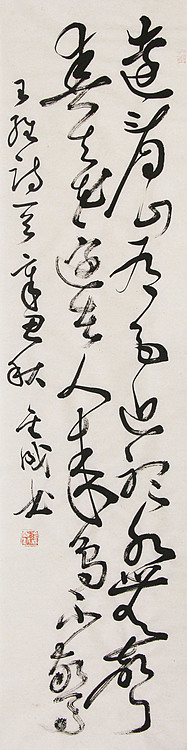 遠看山有色近聽水無聲
春去花還在人來鳥不驚
王維詩一首 辛丑秋 成書